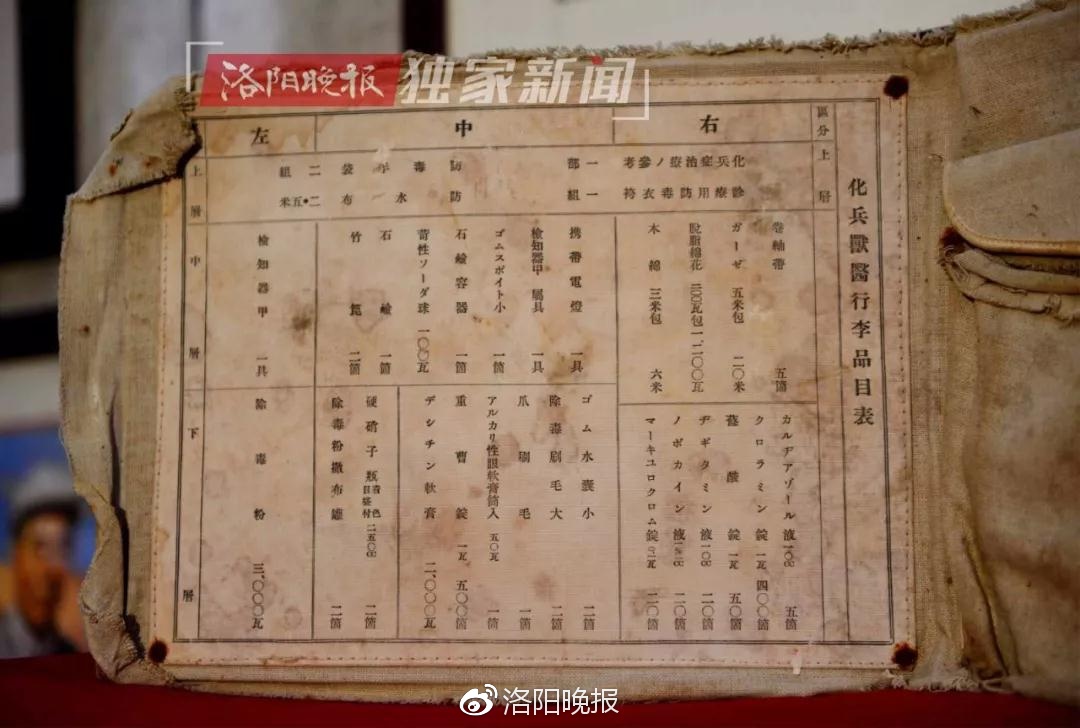 洛阳晚报 独家新闻
化兵獸醫行李品目表
區分 上層
右
化兵症治療ノ參考 一部
診療用防毒衣袴 一組
卷軸帶 五箇
ガーゼ 五米包 二〇米
脫脂綿花 二〇〇瓦包 一、二〇〇瓦
木綿 三米包 六米
カルヂアゾール液 五箇
クロラミン錠 一瓦 四〇〇箇
醋酸錠 一瓦 五〇箇
ヂギタミン液 二〇箇
ノボカイン液 二〇箇
マーキユロクロム錠 二〇箇
中
防毒手袋 二組
防水布 二・五米
携帶電燈 一具
檢知器甲屬具 一具
ゴムスポイト小 一箇
石鹼容器 一箇
苛性ソーダ球 一〇〇瓦
石鹼 一箇
竹篦 二箇
ゴム水囊小 二箇
除毒刷毛大 二箇
爪刷毛 一箇
アルカリ性眼軟膏筒入 五〇瓦 一箇
重曹錠 一瓦 五〇〇箇
デシチン軟膏 二、〇〇〇瓦
硬硝子瓶 着色目盛付 二五〇cc 二箇
除毒粉撒布罐 二箇
左
上層
中層
下層
檢知器甲 一具
除毒粉 三、〇〇〇瓦
洛阳晚报